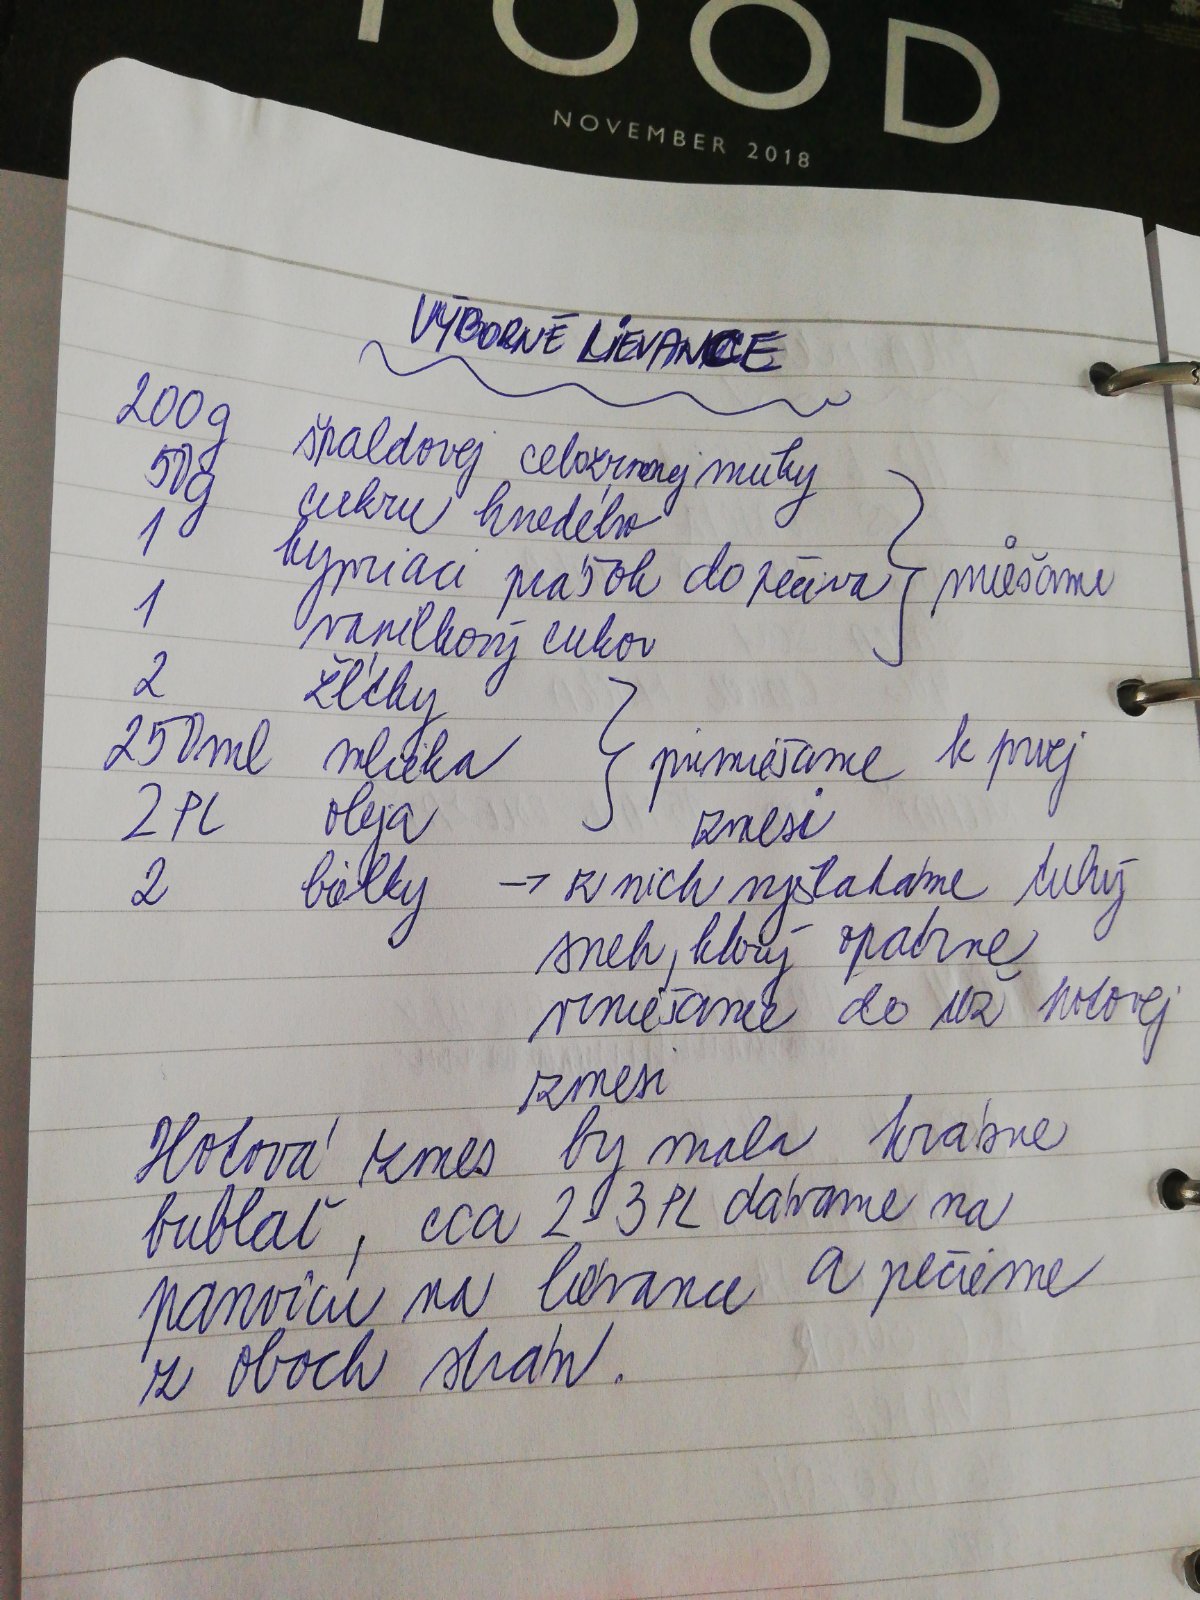 FOOD
NOVEMBER 2018
VÝBORNÉ LIEVANCE
200g špaldovej celozrnnej múky
50g cukru hnedého
1 kypriaci prášok do pečiva } miešame
1 vanilkový cukor
2 žĺtky
250ml mlieka } primiešame k prvej
2 PL oleja zmesi
2 bielky → z nich vyšľaháme tuhý
sneh, ktorý opatrne
vmiešame do už hotovej
zmesi
Hotová zmes by mala krásne
bublať, cca 2-3 PL dávame na
panvicu na lievance a pečieme
z oboch strán.